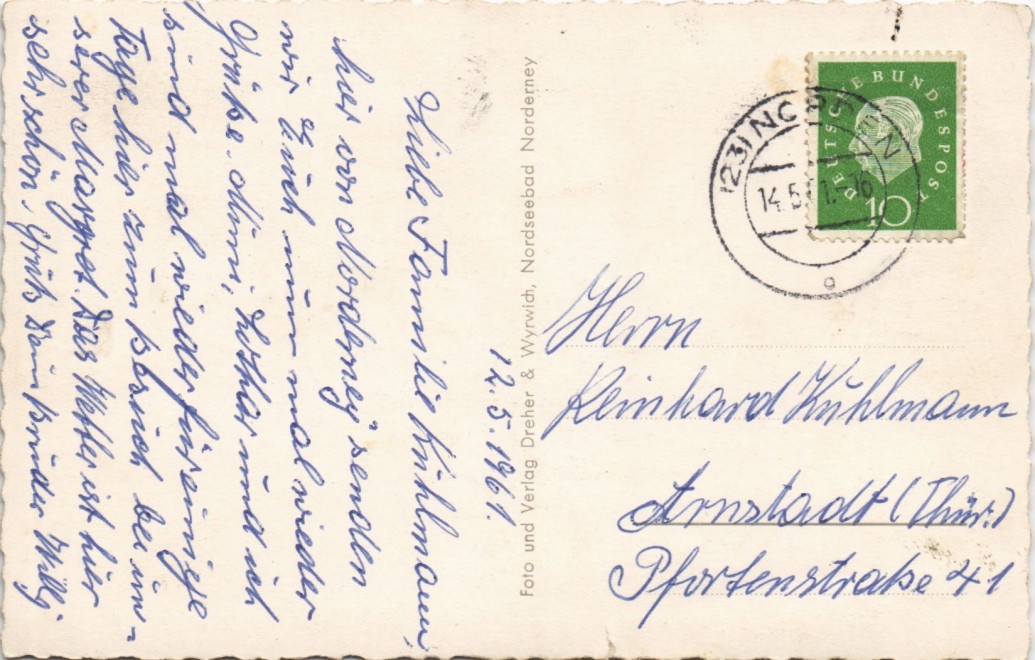 12.5.1961.
Liebe Familie Kuhlmann,
hier von „Norderney" senden
wir Euch nun mal wieder
Grüße. Mimi, Lothar und ich
sind mal wieder für einige
Tage hier zum Besuch bei un-
serer Margret. Das Wetter ist hier
sehr schön. Gruß Dein Bruder Willy
Foto und Verlag Dreher & Wyrwich, Nordseebad Norderney
DEUTSCHE BUNDESPOST
10
(23) NORDDEN
14.5. 1.-16
a
Herrn
Reinhard Kuhlmann
Arnstadt (Thür.)
Pfortenstraße 41